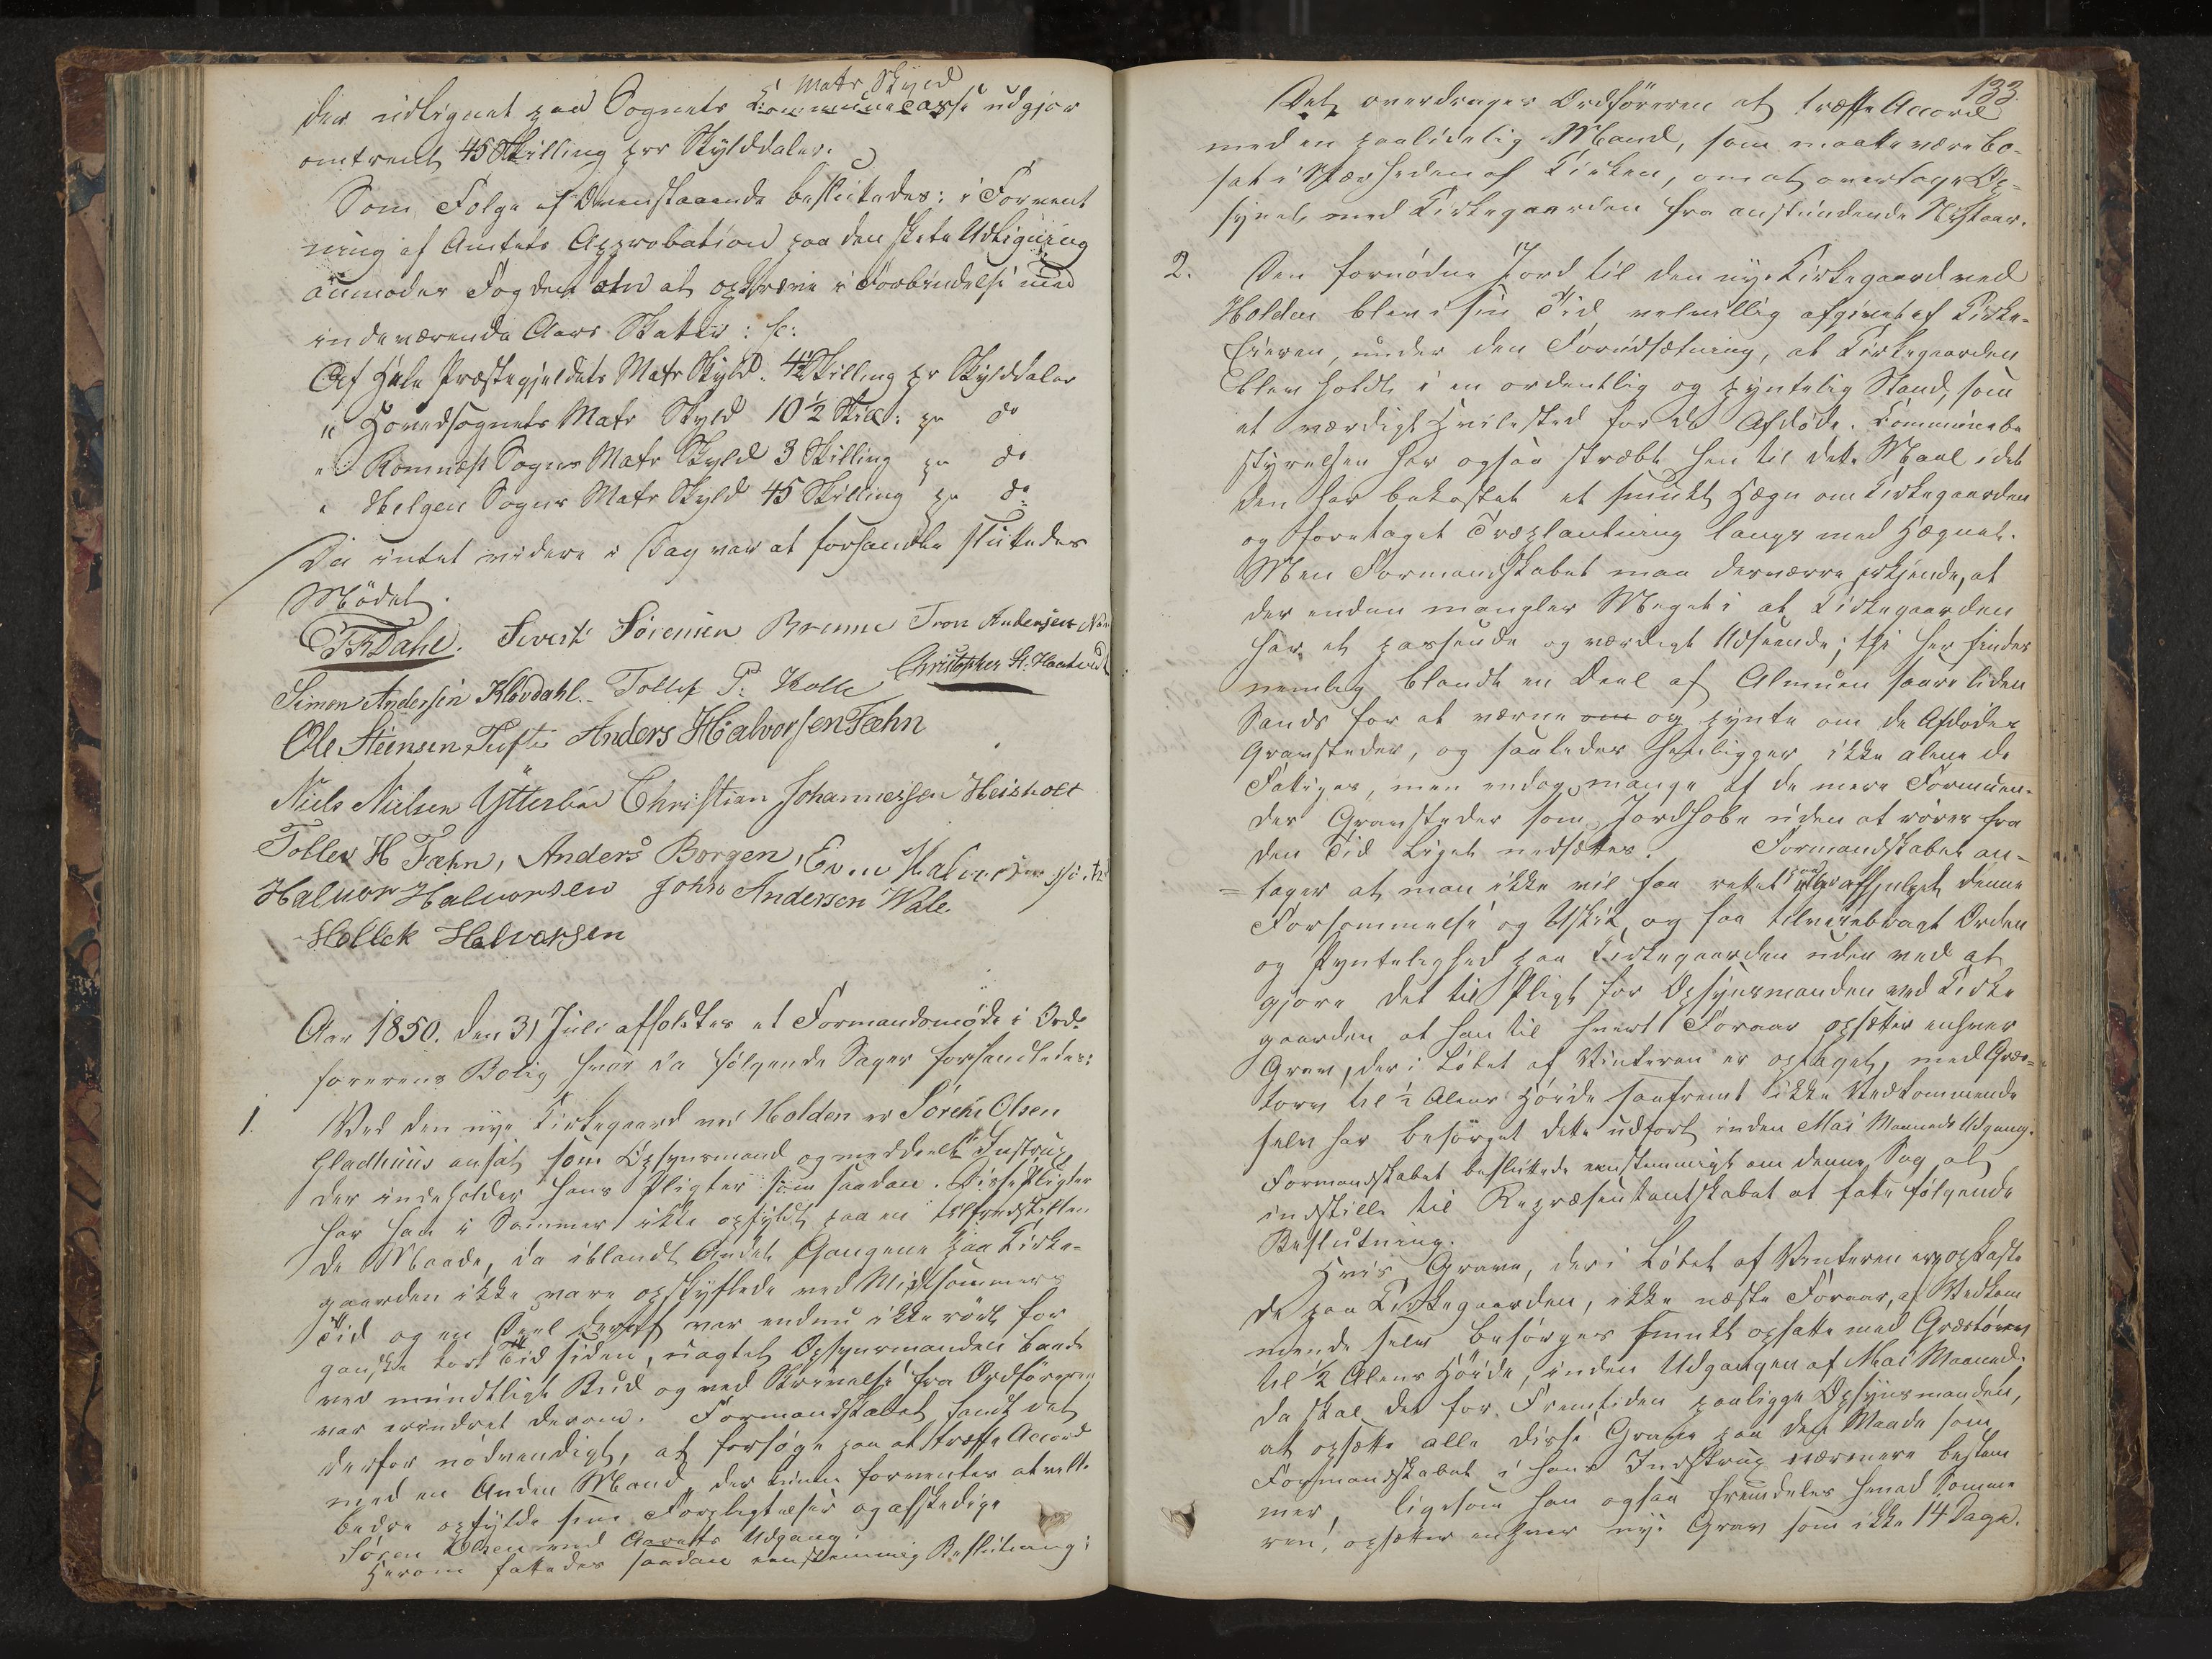 Matr Skyld
der udlignet paa Sognets Communecasse udgjør
omtrent 45 Skilling per Skylddaler.
Som Følge af Ovenstaaende besluttedes: i Forvent
ning af Amtets Approbation paa den skete Udligning
anmodes Fogden om at opkræve i Forbindelse med
indeværende Aars Skatter:
Af Hele Præstegjeldets Matr Skyld. 4½ Skilling pr Skylddaler
" Hovedsognets Matr Skyld 10½ Skill: pr do
" Romnæs Sogns Matr Skyld 3 Skilling pr do
" Helgen Sogns Matr Skyld 45 Skilling pr do
Da intet videre i Dag var at forhandle sluttedes
Mødet.
Dahl. Sivert Sörensen Brenne Tron Andersen
Simon Andersen Klovdahl. Tollef P. Kolle Christopher H. Haatvedt
Ole Steensen Tufte Anders Halvorsen Fæhn
Niels Nielsen Ytterbøe Christian Johannessen Heisholt
Tollev H Fæhn, Anders Borgen, Even Halvorsen
Halvor Halvorsen John Andersen Wale.
Hellek Halvorsen
Aar 1850. den 31 Juli afholdtes et Formandsmøde i Ord-
førerens Bolig hvor da følgende Sager forhandledes:
1. Ved den nye Kirkegaard ved Holden er Sören Olsen
Gladhuus ansat som Opsynsmand og meddeelt Instrux
der indeholder hans Pligter som saadan. Disse Pligter
har han i Sommer ikke opfyldt paa en tilfredsstillen
de Maade, da iblandt Andet Gangene paa Kirke-
gaarden ikke vare opskyflede ved Midtsommers
Tid og en Deel deraf var endnu ikke rört for
ganske kort Tid siden, uagtet Opsynsmanden baade
ved mundtligt Bud og ved Skrivelse fra Ordföreren
var erindret derom. Formandskabet fandt det
derfor nödvendigt, at forsöge paa at træffe Accord
med en Anden Mand, der kunde forventes at ville
bedre opfylde sine Forpligtelser og afskedige
Sören Olsen ved Aarets Udgang.
Herom fattedes saadan eenstemmig Beslutning:
133.
Det overdrages Ordföreren at træffe Accord
med en paalidelig Mand, som maatte være bo-
sat i Nærheden af Kirken, om at overtage Op-
synet med Kirkegaarden fra anstundende Nytaar.
2. Den fornödne Jord til den nye Kirkegaard ved
Holden blev i sin Tid velvillig afgivet af Kirke-
Eieren, under den Forudsætning, at Kirkegaarden
blev holdt i en ordentlig og pyntelig Stand, som
et værdigt Hvilested for de Afdöde. Communebe
styrelsen har ogsaa stræbt hen til dette Maal idet
den har bekostet et smukt Hegn om Kirkegaarden
og foretaget Træplantning langs med Hegnet.
Men Formandskabet maa desværre erkjende, at
der endnu mangler Meget i at Kirkegaarden
har et passende og værdigt Udseende; thi her findes
nemlig blandt en Deel af Almuen saare liden
Sands for at værne om og pynte om de Afdödes
Gravsteder, og saaledes henligger ikke alene de
Fattiges, men endog mange af de mere Formuen-
des Gravsteder som Jordhobe uden at röres fra
den Tid Liget nedsættes. Formandskabet an-
tager at man ikke vil faa rettet paa eller afhjulpet denne
Forsømmelse og Uskik, og faa tilveiebragt Orden
og Pyntelighed paa Kirkegaarden uden ved at
gjøre det til Pligt for Opsynsmanden ved Kirke
gaarden at han til hvert Foraar opsætter enhver
Grav, der i Löbet af Vinteren er opkaget, med Græs-
torv til ½ Alens Höide saafremt ikke Vedkommende
selv har besörget dette udfört inden Mai Maaneds Udgang.
Formandskabet besluttede eenstemmigt om denne Sag at
indstille til Repræsentantskabet at fatte fölgende
Beslutning.
Hvis Grave, der i Löbet af Vinteren ere opkaste
de paa Kirkegaarden, ikke næste Foraar, af Vedkom
mende selv besörges smukt opsatte med Græstörv
til ½ Alens Höide, inden Udgangen af Mai Maaned;
da skal det for Fremtiden paaligge Opsynsmanden,
at opsætte alle disse Grave paa den Maade som
Formandskabet i hans Indstrux nærmere bestem
mer, ligesom han ogsaa fremdeles henad Somme
ren, opsætter enhver nye Grav som ikke 14 Dage.